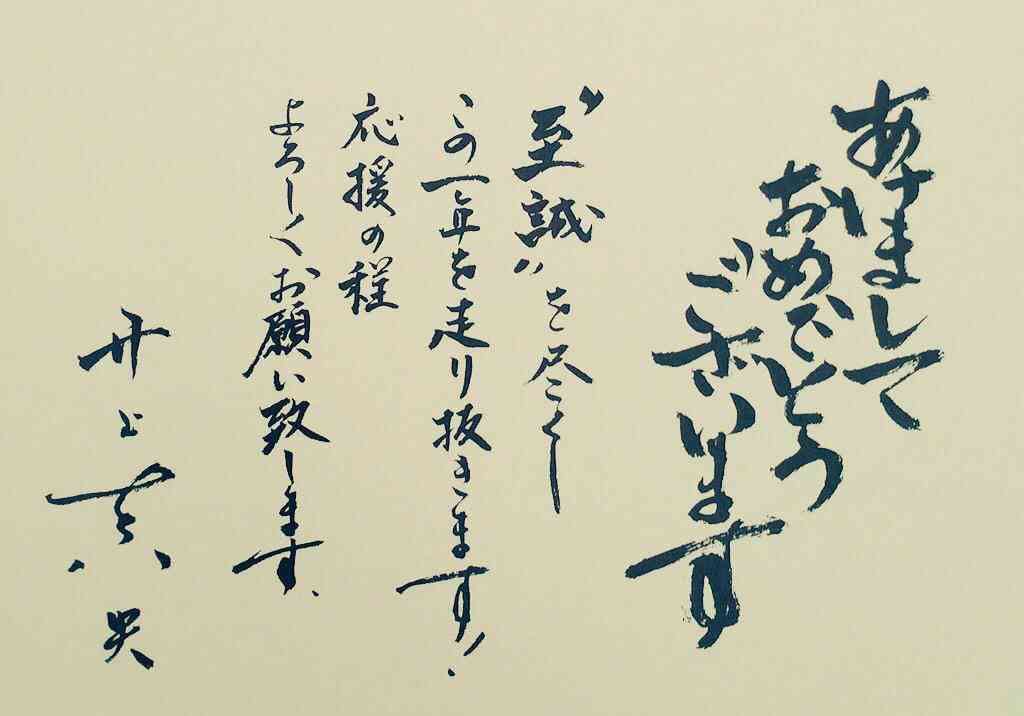 あけまして
おめでとう
ございます
"至誠"を尽くし
この一年を走り抜きます!
応援の程
よろしくお願い致します、
井上真央